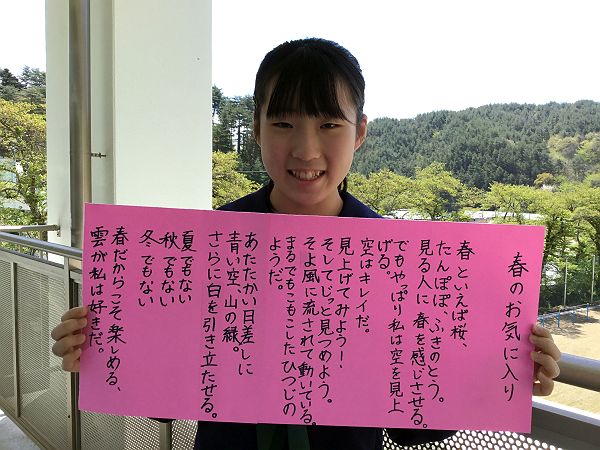 春のお気に入り
春といえば桜、
たんぽぽ、ふきのとう。
見る人に春を感じさせる。
でもやっぱり私は空を見上
げる。
空はキレイだ。
見上げてみよう！、
そしてじっと見つめよう。
そよ風に流されて動いている。
まるでもこもこしたひつじの
ようだ。
あたたかい日差しに
青い空、山の緑。
さらに白を引き立たせる。
夏でもない
秋でもない
冬でもない
春だからこそ楽しめる、
雲が私は好きだ。